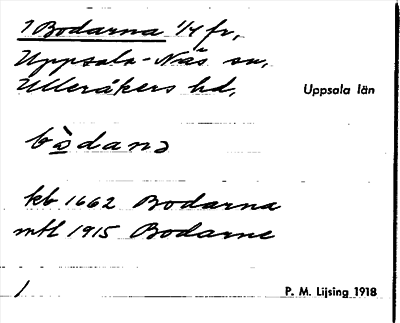 1 Bodarna 1/4 fr,
Uppsala-Näs sn,
Ulleråkers hd,
Uppsala län
bòdanə
kb 1662 Bodarna
mtl 1915 Bodarne
1
P. M. Lijsing 1918